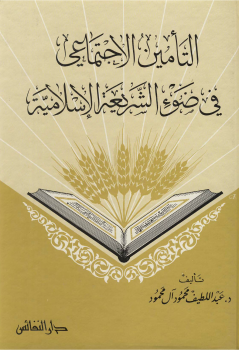 التأمين الاجتماعي
في ضوء الشريعة الإسلامية
تأليف
د. عبد اللطيف محمود آل محمود
دار النفائس